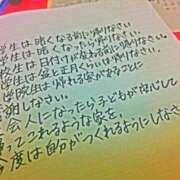 学生は暗くなる前に帰りなさい
学生は暗くなったら帰りなさい。
校生は日付けが変わる前に帰りなさい。
学生は盆と正月くらいは帰りなさい。
学院生は帰れる家があることに
謝しなさい。
会人になったら子どもが安心して
ってこれるような家を、
今度は自分がつくれるようにしなさ